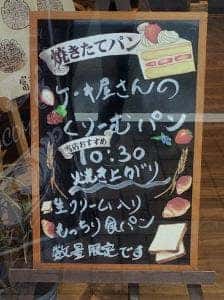 焼きたてパン
ケーキ屋さんの
くりーむパン
当店おすすめ
10:30
焼き上がり
生クリーム入り
もっちり食パン
数量限定です